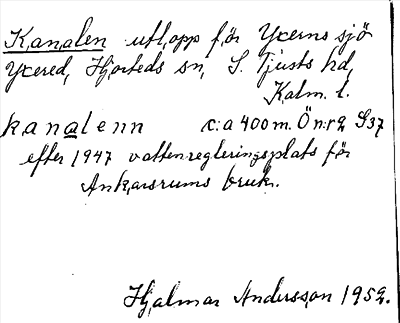 Kanalen utlopp för Yxerns sjö
Yxered, Hjorteds sn, S. Tjusts hd,
Kalm. l.
kanalenn c:a 400 m. Ö n:r 2 S 37
efter 1947 vattenregleringsplats för
Ankarsrums bruk.
Hjalmar Andersson 1952.